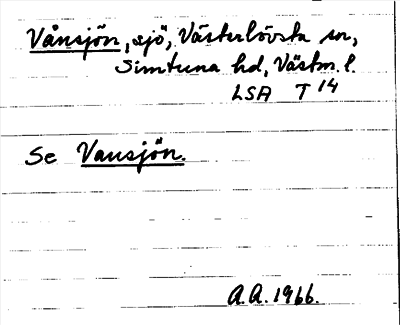 Vånsjön, sjö, Västerlövsta sn,
Simtuna hd, Västm. l.
LSA T 14
Se Vansjön.
A.A. 1966.